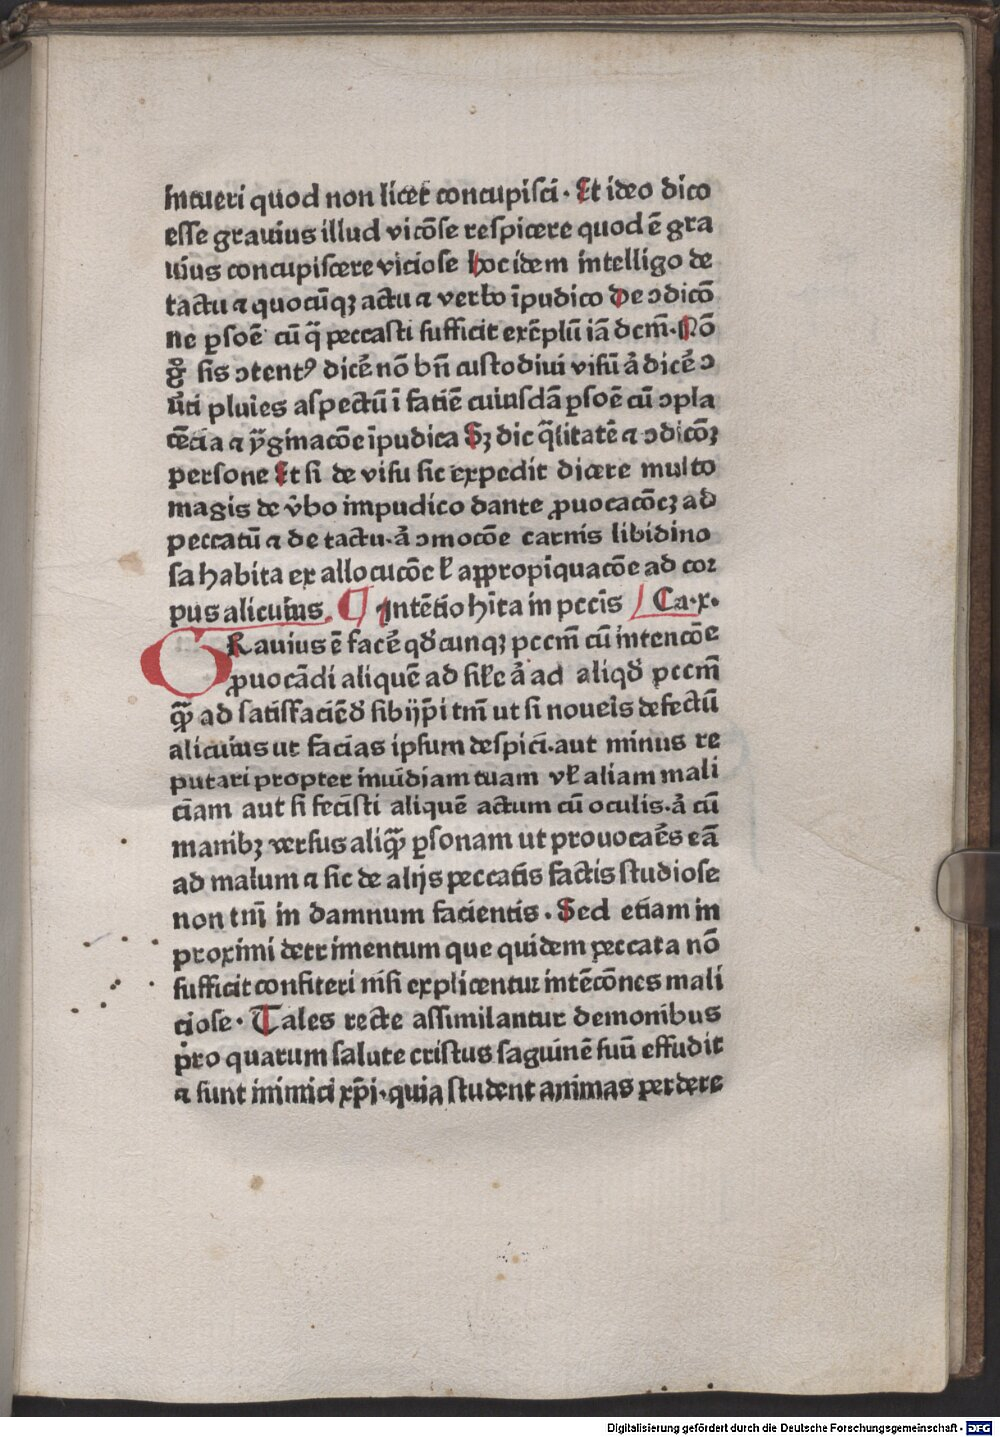 intueri quod non licet concupisci· Et ideo dico
esse grauius illud vicōse respicere quod ē gra
uius concupiscere viciose hoc idem intelligo de
tactu ⁊ quocūqꝫ actu ⁊ verbo īpudico De ↄdicō
ne ꝑsoē cū q̄ peccasti sufficit exēplū iā dcm̄· Nō
gͦ sis ↄtentꝰ dicē̄ nō bn̄ custodiui visū ā̓ dicē̓ ↄ
uīti pluies aspectū ī fatiē cuiusdā ꝑsoē cū ↄpla
cēcia ⁊ ẏginacōe īpudica Sꝫ dic q̄litatē ⁊ ↄdicōꝫ
persone Et si de visu sic expedit dicere multo
magis de v̓bo impudico dante ꝓuocacōeꝫ ad
peccatū ⁊ de tactu· ā̓ ↄmocōe carnis libidino
sa habita ex allocucōe ł aꝓpropiquacōe ad coꝛ
pus alicuius. ¶ Intētio hīta in pccīs Ca·x·
GRauius ē facē̓ qd̓cunqꝫ pccm̄ cū intencōe
ꝓuocādi aliquē ad sił̓e ā̓ ad aliqd̓ pccm̄
qꝫ̄ ad satisfaciēd̓ sibijp̄i tm̄ ut si noueīs defectū
alicuius ut facias ipsum despici·aut minus re
putari propter inuidiam tuam vł aliam mali
ciam aut si fecisti aliquē actum cū oculis·ā̓ cū
manibꝫ versus aliqꝫ̄ ꝑsonam ut prouocaēs eā
ad malum ⁊ sic de alijs peccatis factis studiose
non tm̄ in damnum facientis· Sed etiam in
proximi detrimentum que quidem peccata nō
sufficit confiteri nisi explicentur intēcōnes mali
ciose· Tales recte assimilantur demonibus
pro quarum salute cristus saguinē suū effudit
⁊ sunt inimici xp̄i·quia student animas perdere
Digitalisierung gefördert durch die Deutsche Forschungsgemeinschaft - DFG